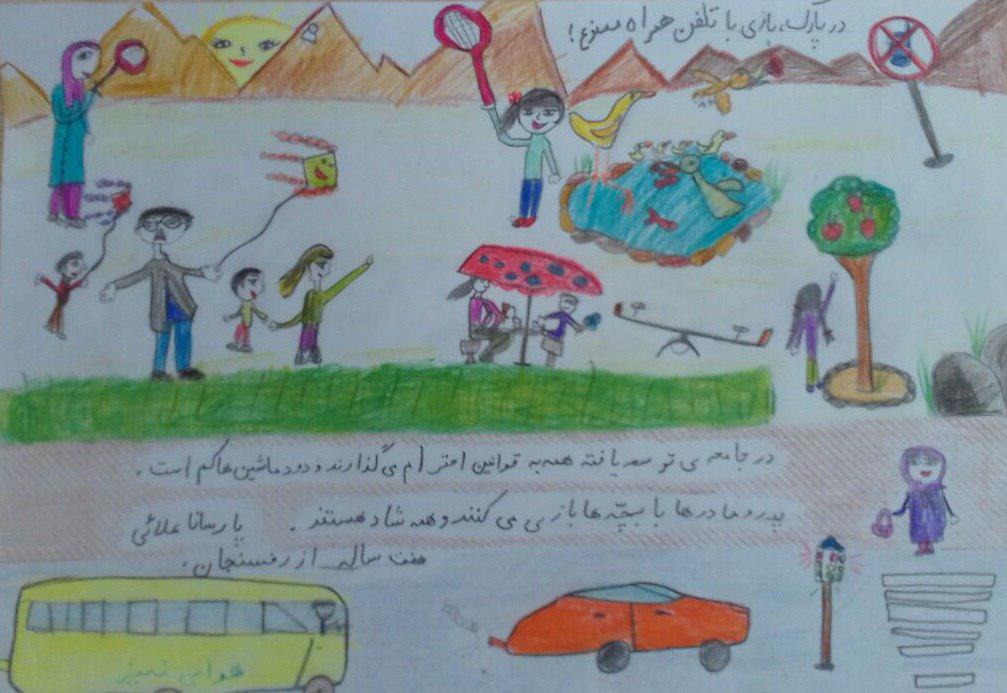 در پارک، بازی با تلفن همراه ممنوع!
در جامعه ی توسعه یافته همه به قوانین احترام می گذارند و دود ماشین ها کم است.
پدر و مادرها با بچّه ها بازی می کنند و همه شاد هستند. پارسانا علائی
هفت ساله از رفسنجان.
هوای تمیز